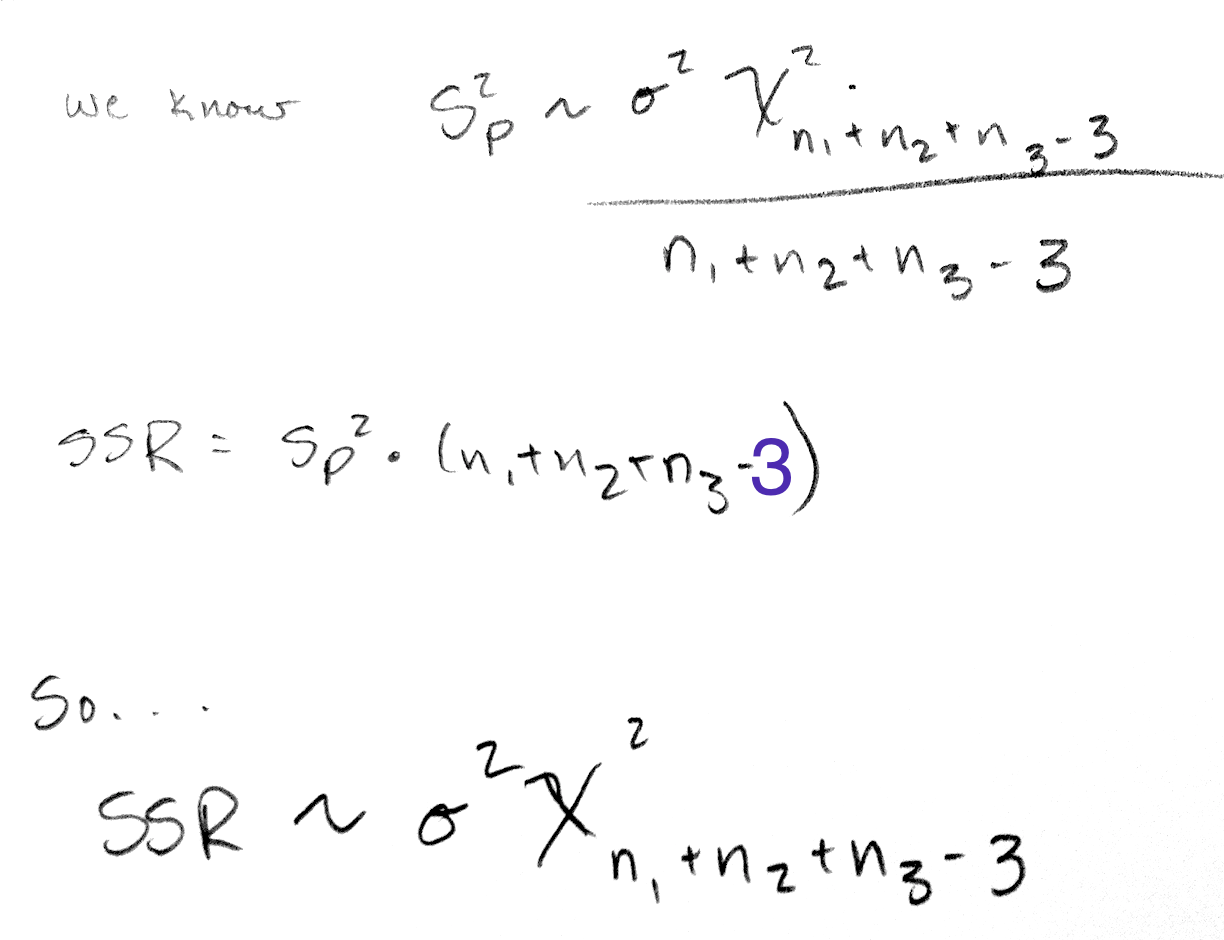 we know S²ₚ ~ σ² χ²ₙ₁₊ₙ₂₊ₙ₃₋₃
n₁ + n₂ + n₃ - 3
SSR = Sₚ² · (n₁+n₂+n₃-3)
So....
SSR ~ σ² χ²ₙ₁₊ₙ₂₊ₙ₃₋₃